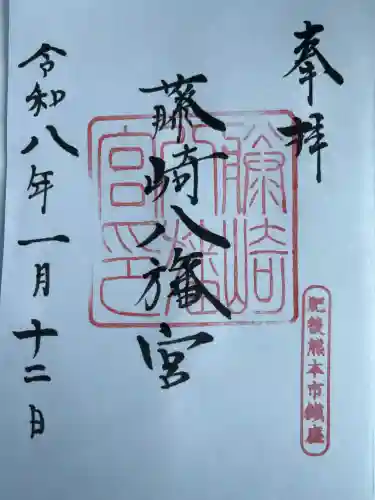 奉拝
肥後熊本市鎮座
藤崎八旛宮
藤崎八幡宮印
令和八年一月十二日